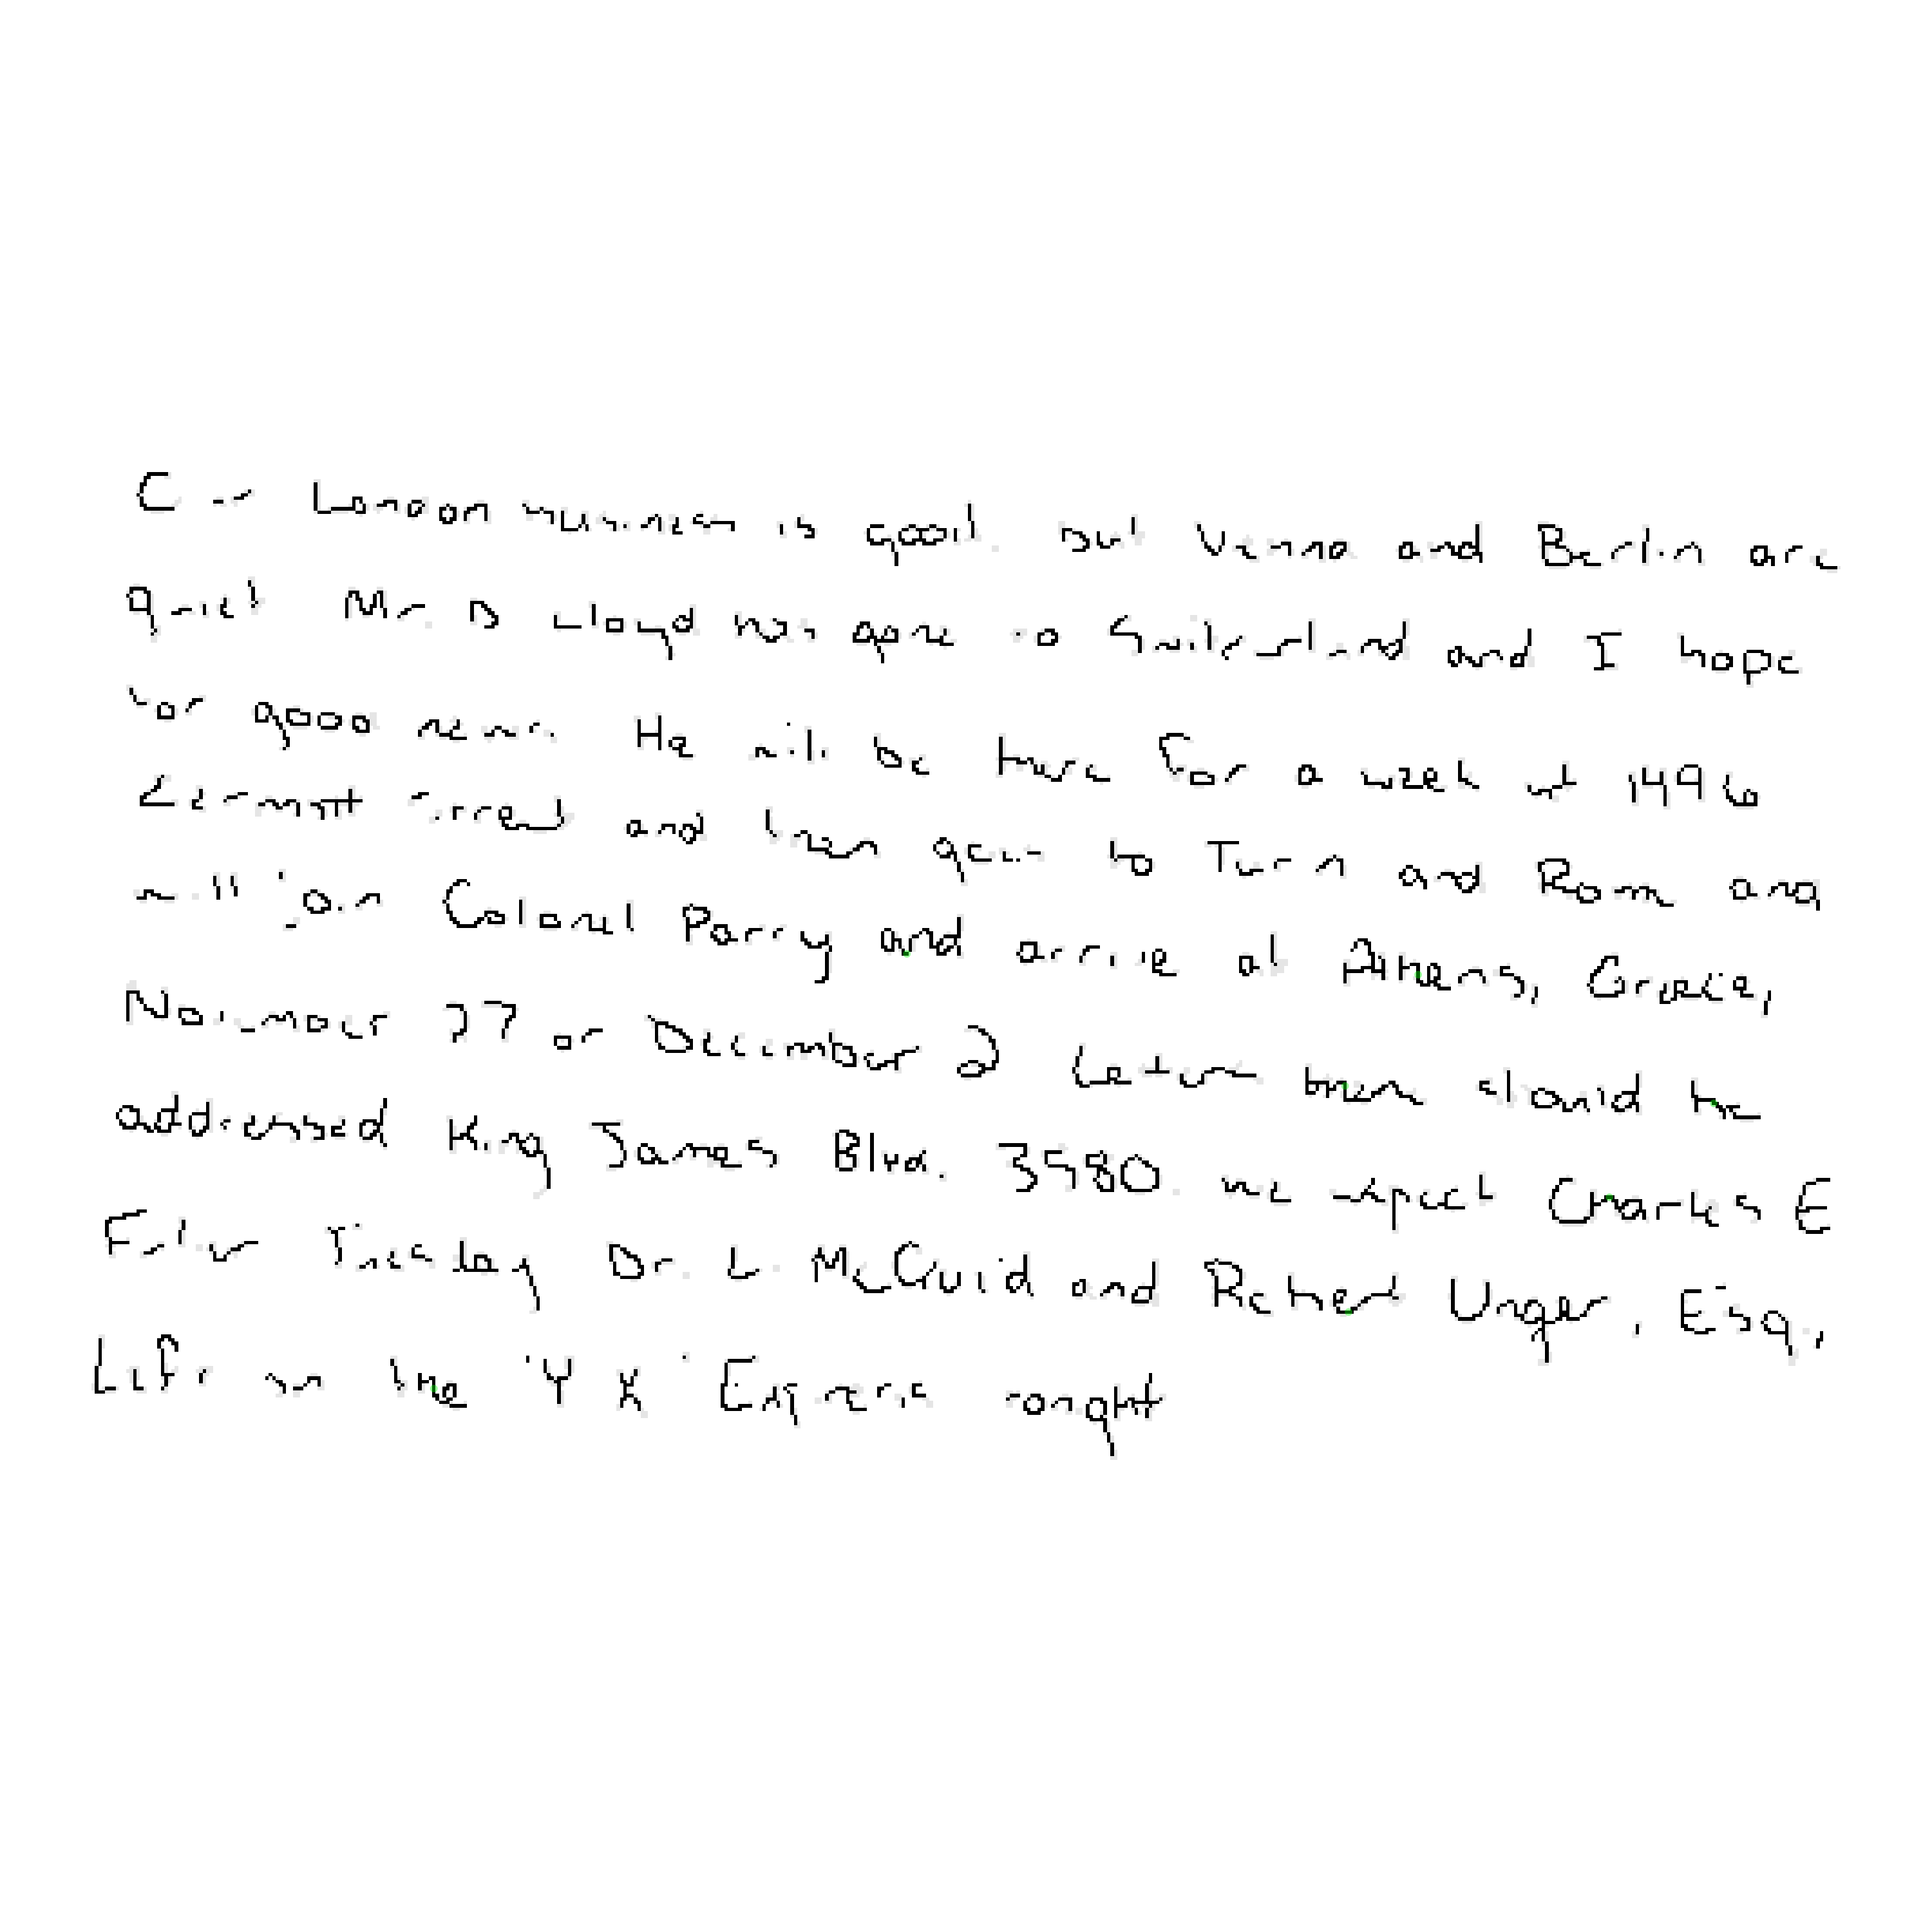 Our London business is good, but Vienna and Berlin are
quiet. Mr. D. Lloyd has gone to Switzerland and I hope
for good news. He will be there for a week at 1496
Zermott Street and then goes to Turin and Rome and
will join Colonel Parry and arrive at Athens, Greece,
November 27 or December 2. Letters there should be
addressed King James Blvd. 3580. We expect Charles E.
Fuller Tuesday. Dr. L. McQuaid and Robert Unger, Esq.,
Left on the "Y.X." Express tonight.